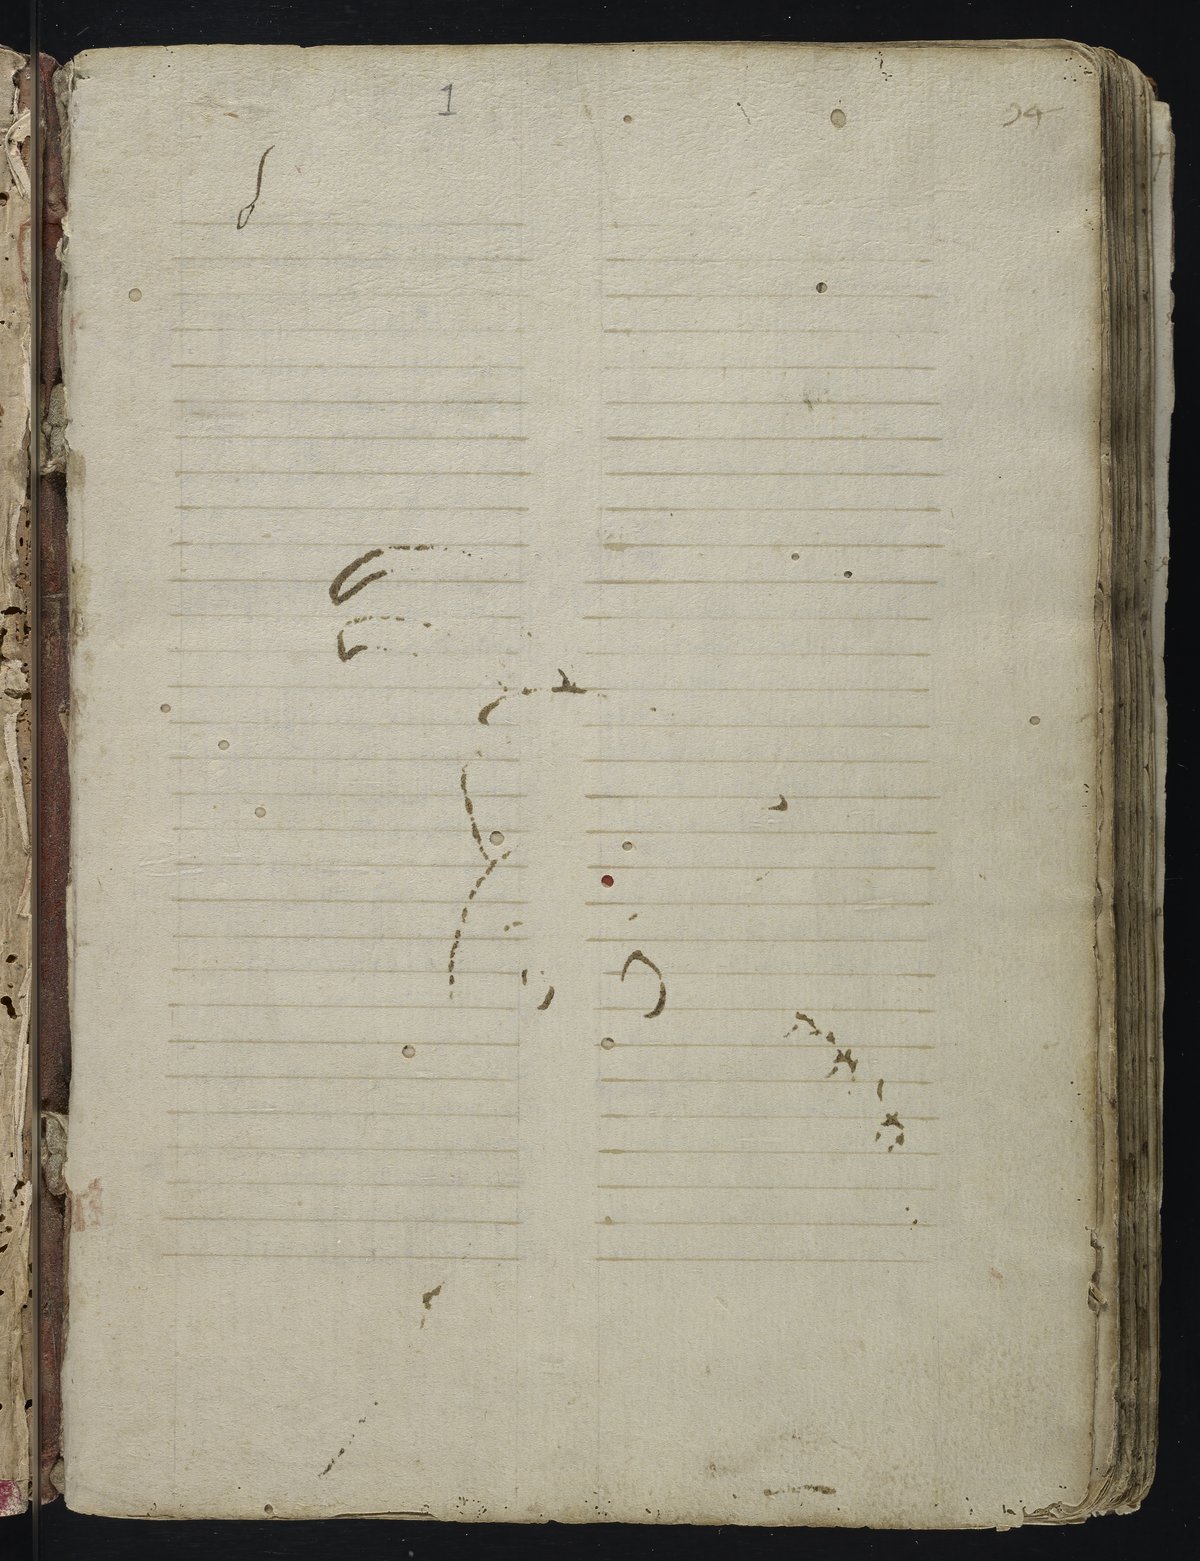 1
94